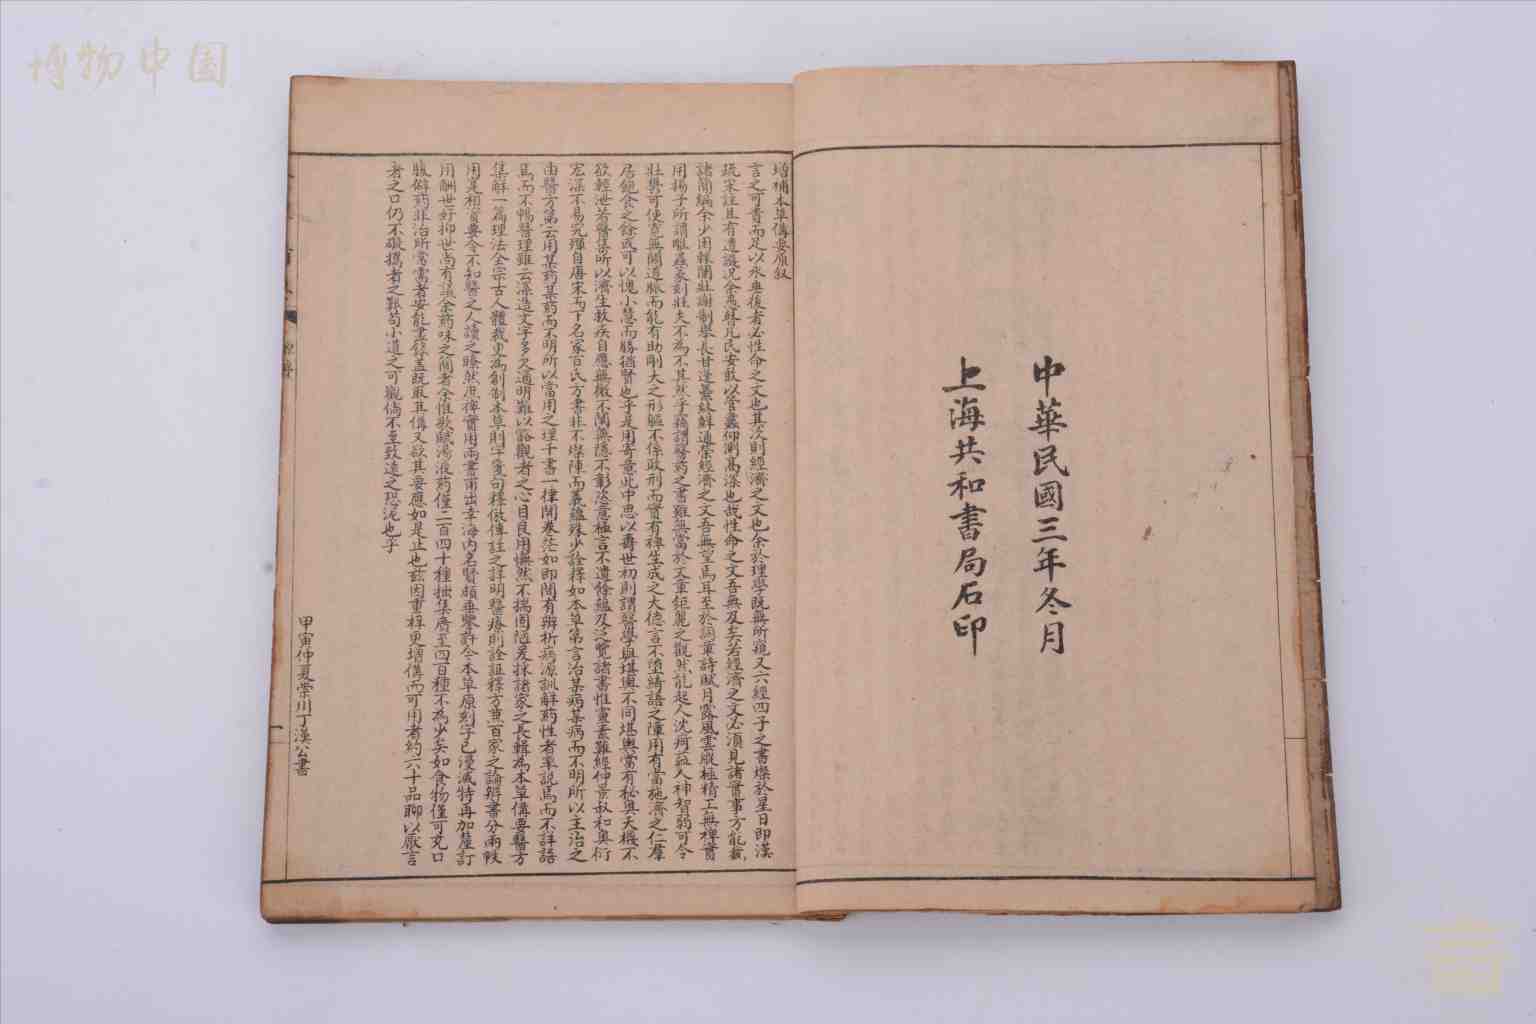 中華民國三年冬月
上海共和書局石印
增補本草備要原敘
言之可貴而足以永垂後者必性命之文也其次則經濟之文也余於理學既無所窺又六經四子之書燦於星日即漢
疏宋註且有遺譏況余愚瞽凡民安敢以管蠡仰測高深也哉性命之文吾無及矣若經濟之文必須見諸實事方能載
諸簡編余少困棘闈壯謝制舉長甘蓬藋終鮮通榮經濟之文吾無望焉耳至於詞章詩賦月露風雲縱極精工無裨實
用揚子所謂雕蟲篆刻壯夫不為不其然乎竊謂醫药之書雖無當於文章鉅麗之觀然能起人沈疴益人神智弱可令
壯鬱可使寬無關道脈而能有助剛大之形軀不係政刑而實有裨生成之大德言不墮綺語之障用有當施濟之仁羣
居飽食之餘或可以愧小慧而勝猶賢也乎是用寄意此中思以壽世初則謂醫學與堪輿不同堪輿當有秘奧天機不
欲輕泄若醫集所以濟生救疾自應無微不闡無隱不彰恣意極言不遺餘蘊及泛覽諸書惟靈素難經仲景叔和奧衍
宏深不易究殫自唐宋而下名家百氏方書非不燦陳而義蘊殊少詮釋如本草第言治某病某病而不明所以主治之
由醫方第云用某药某药而不明所以當用之理千書一律開卷茫如即間有辨析病源訓解药性者率說焉而不詳語
焉而不暢醫理雖云深造文字多欠通明難以豁觀者之心目良用憮然不揣固陋爰採諸家之長輯為本草備要醫方
集解一篇理法全宗古人體裁更為創制本草則字箋句釋倣傳註之詳明醫療則詮証釋方兼百家之論辨書分兩帙
用是相資要令不知醫之人讀之瞭然庶裨實用兩書甫出幸海內名賢頗垂鑒許今本草原刻字已漫滅特再加釐訂
用酬世好抑世尚有議余药味之簡者余惟歌賦湯液药僅二百四十種拙集廣至四百種不為少矣如食物僅可充口
腹僻药非治所常需者安能盡錄蓋既取其備又欲其要應如是止也茲因重梓更增備而可用者約六十品聊以厭言
者之口仍不礙攜者之艱苟小道之可觀倘不至致遠之恐泥也乎
甲寅仲夏崇川丁漢公書
博物中国